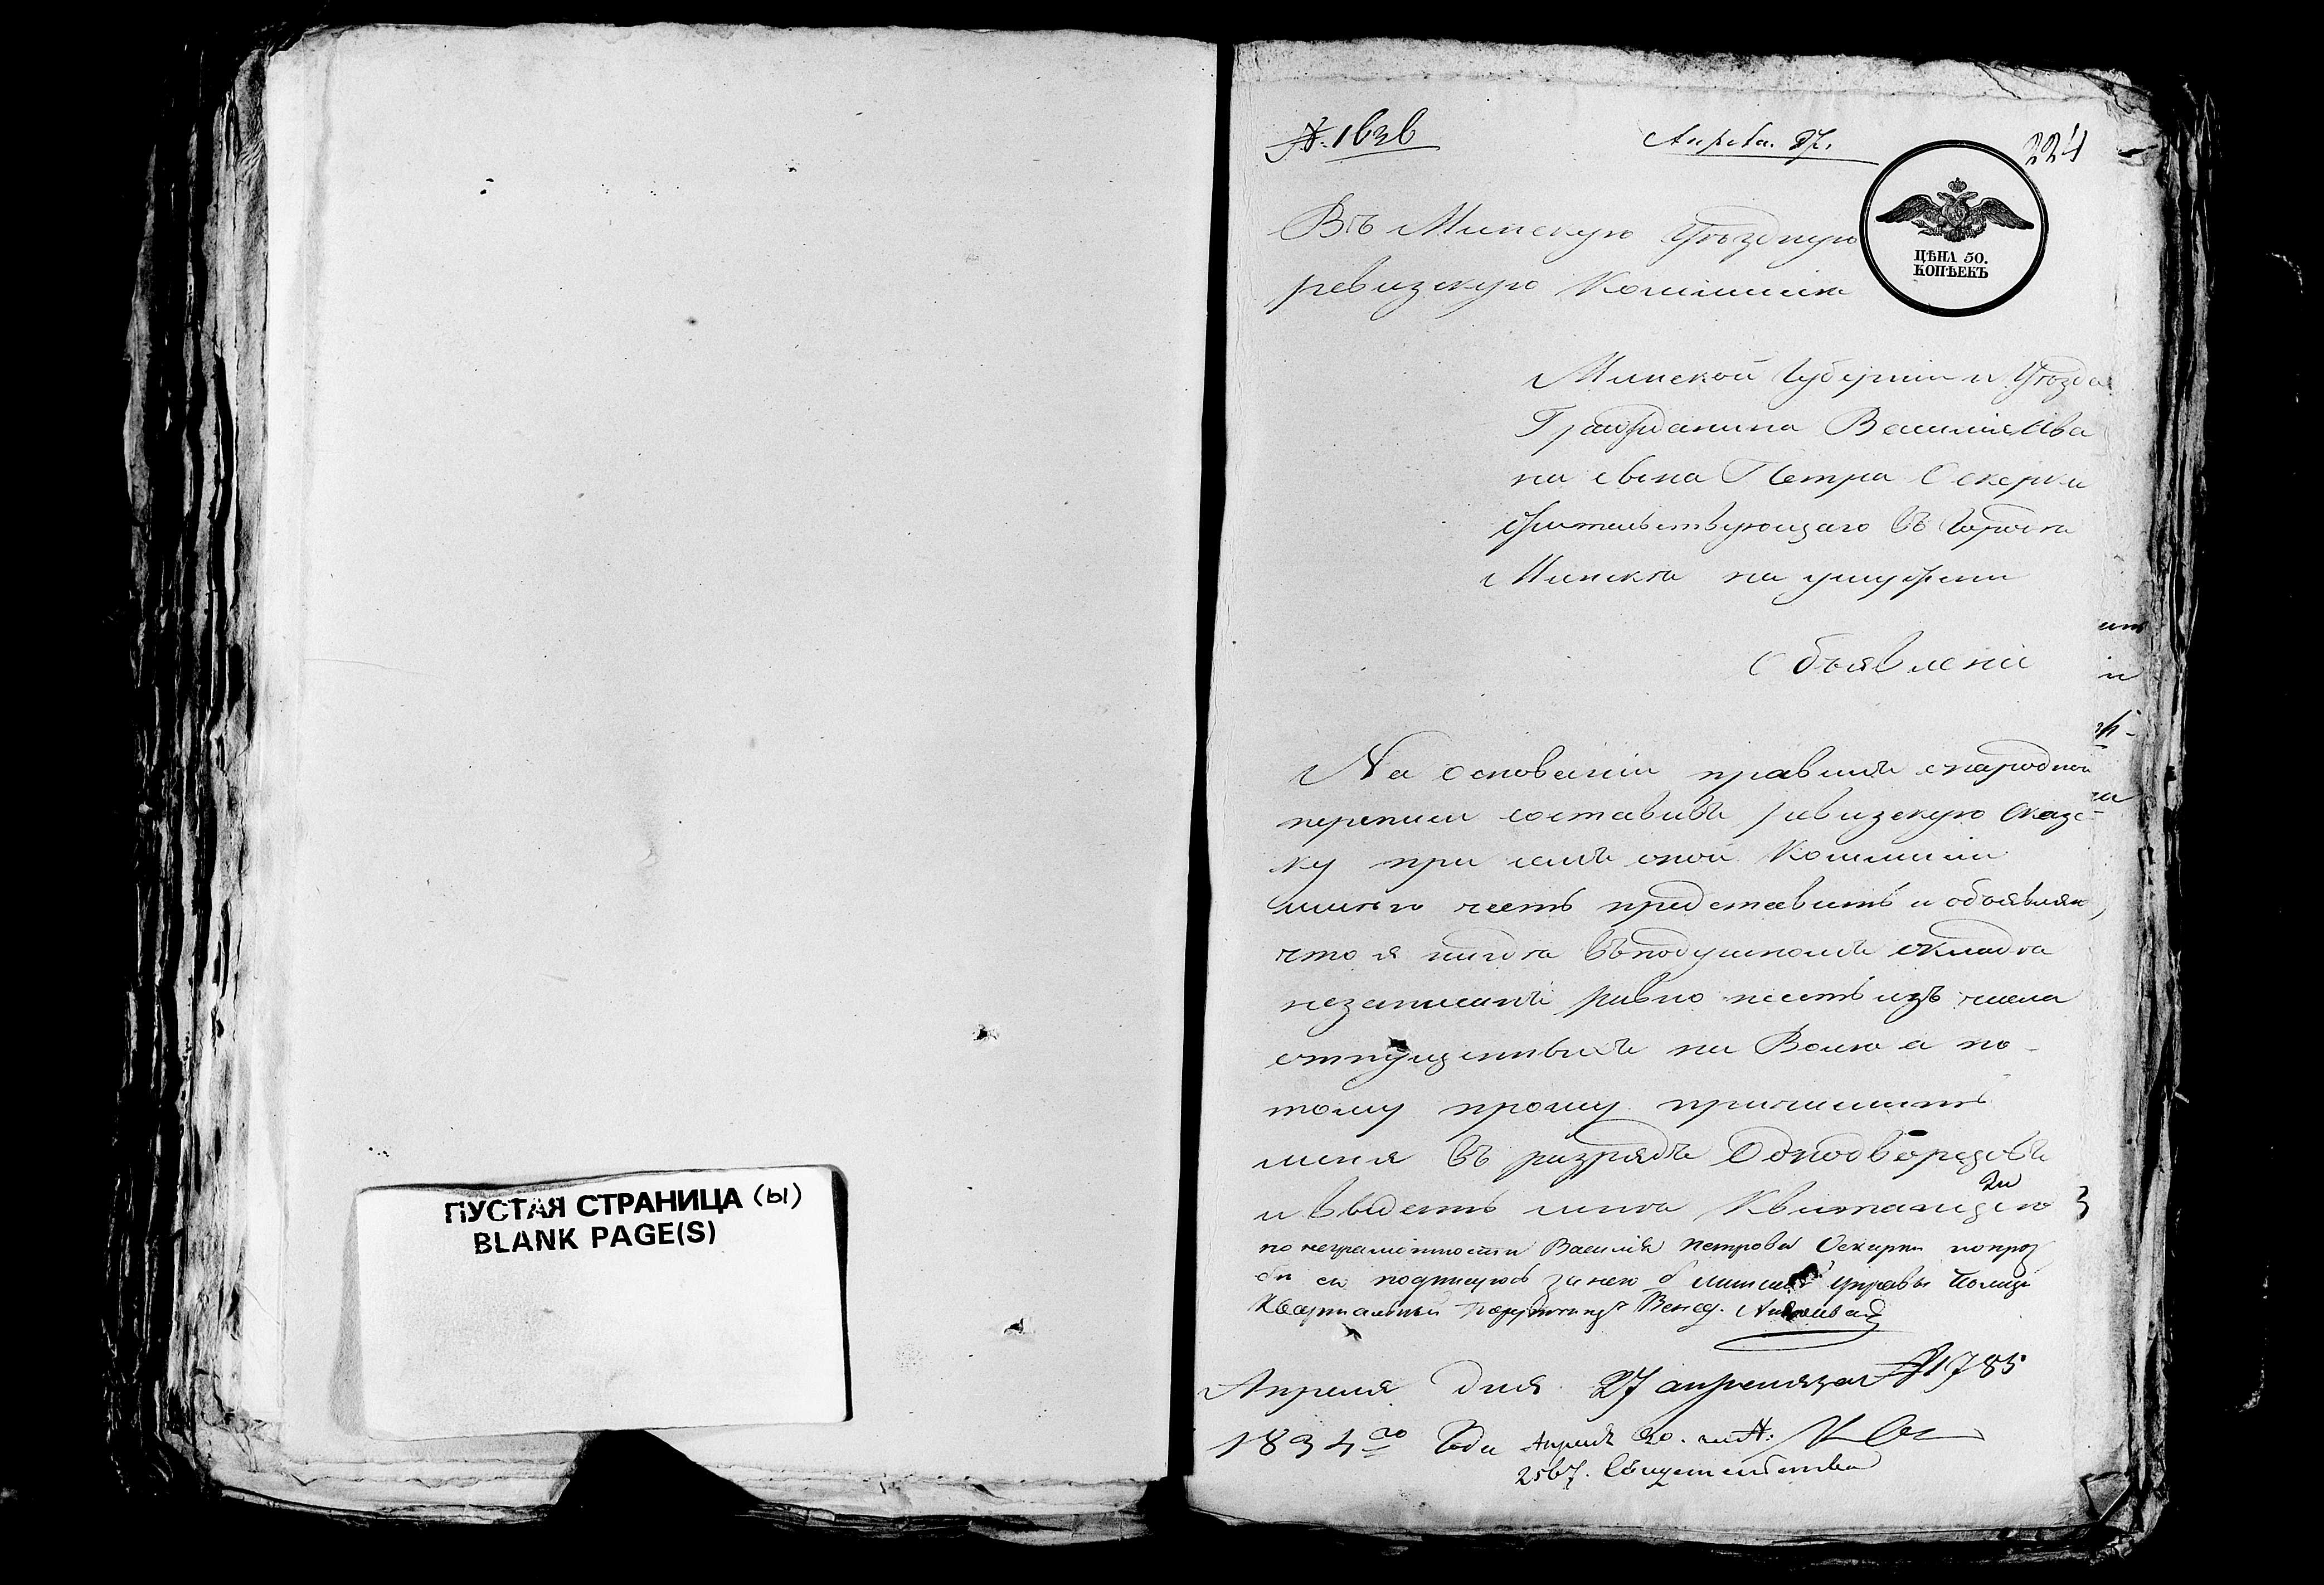 ПУСТАЯ СТРАНИЦА (ы)
BLANK PAGE(S)
№ 1636
Апреля 27.
224
ЦѢНА 50.
КОПѢЕКЪ
Въ Минскую Уѣздную
ревизскую Комисию
Минской Губернии и Уѣзда
Гражданина Василия Ива
на сына Петра Оскерки
жительствующаго въ городѣ
Минскѣ
Объявление
На основании правилъ о народной
переписи составивъ ревизскую сказ-
ку при семъ оной Комисии
имѣю честь представить и объявляю,
что я нигдѣ въ подушномъ окладѣ
незаписанъ равно несть изъ числа
отпущенныхъ на Волю а по-
тому прошу причислить
меня въ разрядъ Однодворцовъ
и выдать мнѣ Квитанцию
по неграмотности Василия Петрова Оскерки по прозь
бѣ его подписуюсь за него Минской Управы Полиции
Квартальный
Апреля дня 27 апреля за № 1785
1834го Года Апреля 30. за №:
2567. Свидетельство